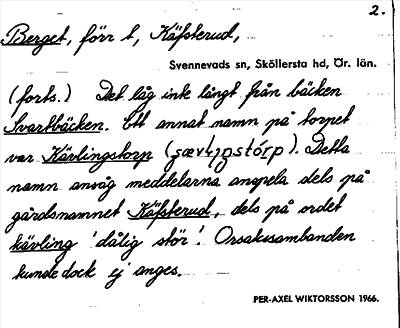 2.
Berget, förr t, Käfsterud,
Svennevads sn, Sköllersta hd, Ör. län.
(forts.) Det låg inte långt från bäcken
Svartbäcken. Ett annat namn på torpet
var Kävlingstorp (). Detta
namn ansåg meddelarna anspela dels på
gårdsnamnet Käfsterud, dels på ordet
kävling 'dålig stör'. Orsakssambanden
kunde dock ej anges.
PER-AXEL WIKTORSSON 1966.